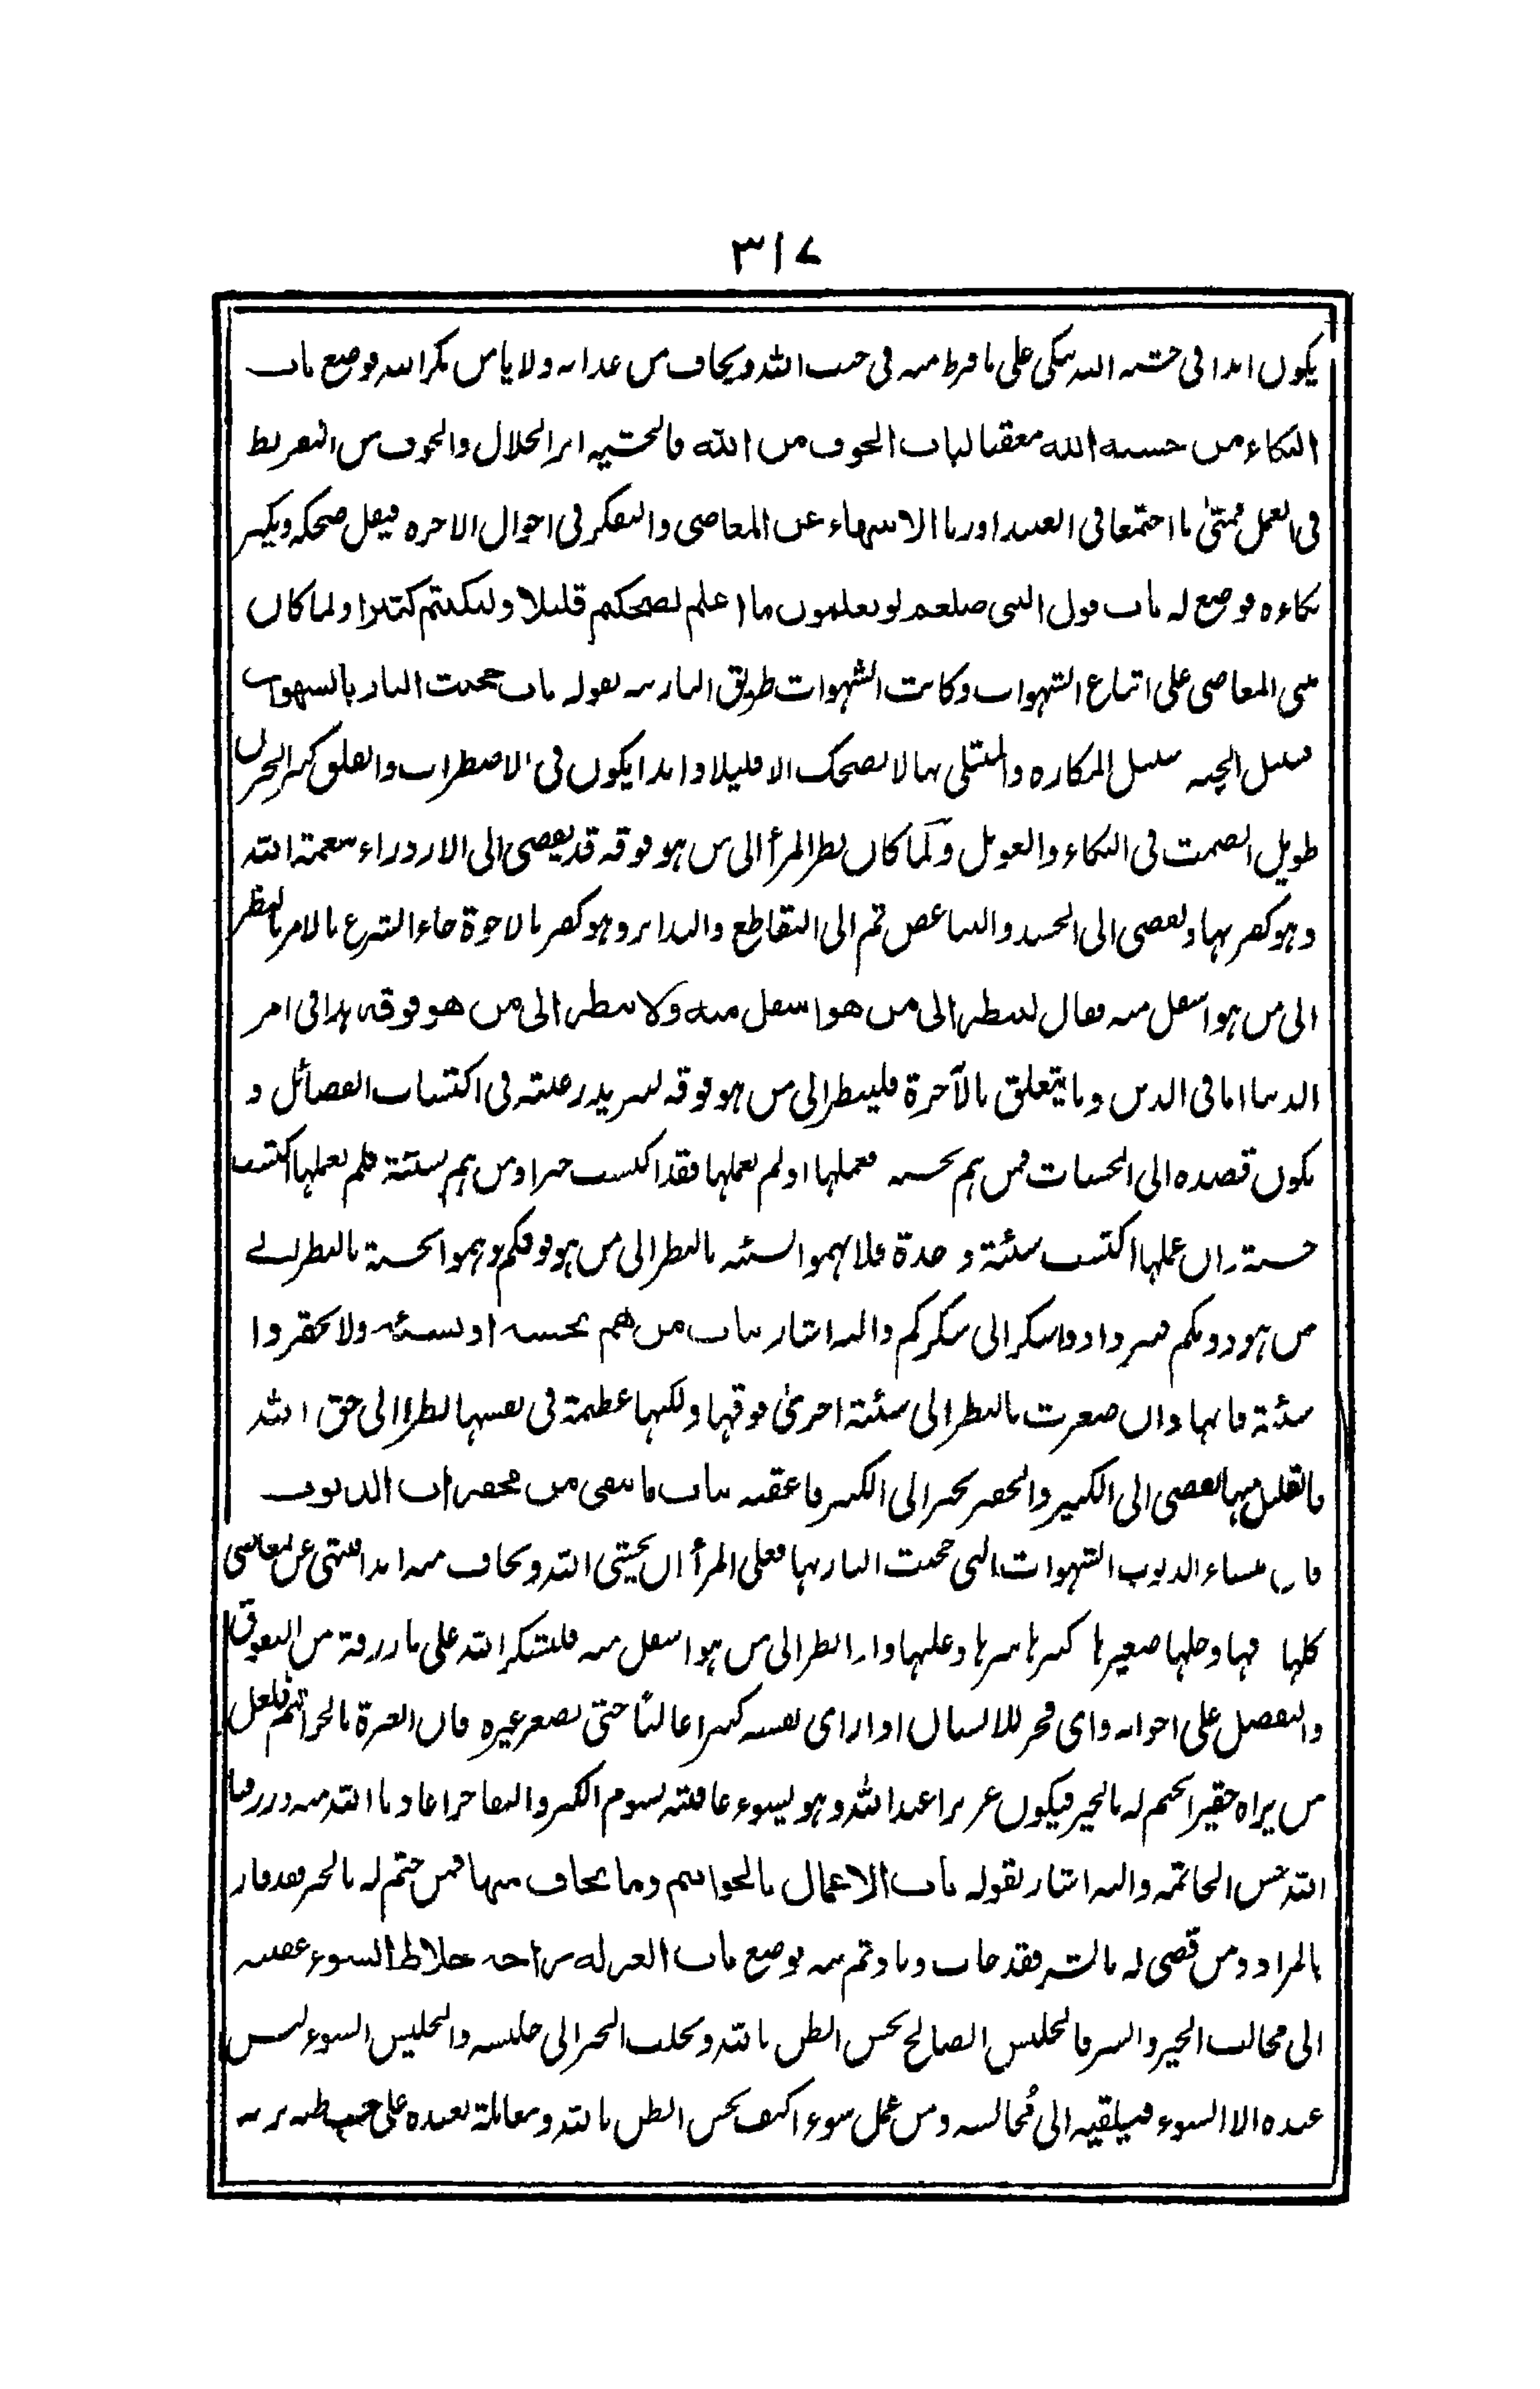 ٣١٧
يكون ابدا فى خشية الله يبكى على ما فرط منه فى جنب الله ويخاف من عذابه ولا يامن مكر الله فوضع باب
البكاء من خشية الله معقبا لباب الخوف من الله فالخشية اثر الجلال والخوف من التفريط
فى العمل فمتىٰ ما اجتمعا فى العبد اورثا الانتهاء عن المعاصى والتفكر فى احوال الاخرة فيقل ضحكه ويكثر
بكاءه فوضع له باب قول النبى صلعم لو تعلمون ما اعلم لضحكتم قليلا ولبكيتم كثيرا ولما كان
مبنى المعاصى على اتباع الشهوات وكانت الشهوات طريق النار نبه بقوله باب حجبت النار بالشهوات
سبيل الجنة سبيل المكاره والمبتلى بها لا يضحك الا قليلا وابدا يكون فى الاضطراب والقلق كثير الحزن
طويل الصمت فى البكاء والعويل ولما كان نظر المرأ الى من هو فوقه قد يفضى الى الازدراء بنعمة الله
وهو كفر بها ويفضى الى الحسد والتباغض ثم الى التقاطع والتدابر وهو كفر بالاخوة جاء الشرع بالامر بالنظر
الى من هو اسفل منه فقال لينظر الى من هو اسفل منه ولا ينظر الى من هو فوقه هذا فى امر
الدنيا اما فى الدين وما يتعلق بالآخرة فلينظر الى من هو فوقه ليزيد رغبته فى اكتساب الفضائل و
يكون قصده الى الحسنات فمن هم بحسنة فعملها او لم يعملها فقد اكتسب خيرا ومن هم بسيئة فلم يعملها اكتسب
حسنة وان عملها اكتسب سيئة وحدة فلا تهموا السيئة بالنظر الى من هو فوقكم وهموا الحسنة بالنظر الے
من هو دونكم فيزدادوا شكرا الى شكركم واليه اشار بباب من هم بحسنة او بسيئة ولا تحقروا
سيئة فانها وان صغرت بالنظر الى سيئة اخرىٰ فوقها ولكنها عظيمة فى نفسها نظرا الى حق الله
فالقليل منها يفضى الى الكبير والحقير يجر الى الكبير فاعقبه بباب ما يتقى من محقرات الذنوب
فان منشاء الذنوب الشهوات التى حجبت النار بها فعلى المرأ ان يخشى الله ويخاف منه ابدا فينتهى عن المعاصى
كلها دقها وجلها صغيرها كبيرها سرها وعلنها واذا نظر الى من هو اسفل منه فليشكر الله على ما رزقه من التفوق
والفضل على اخوانه واى فخر للانسان اذا راى نفسه كبيرا عاليًا حتى يصغر غيره فان العبرة بالخواتيم فلعل
من يراه حقيرا يختم له بالخير فيكون عزيزا عند الله وهو يسوء عاقبته لشوم الكبر والتفاخر اعاذنا الله منه ورزقنا
الله حسن الخاتمة واليه اشار بقوله باب الاعمال بالخواتيم وما يخاف منها فمن ختم له بالخير فقد فاز
بالمراد ومن قضى له بالشر فقد خاب ونادم ثم نبه بوضع باب العزلة راحة من خلاط السوء عقبه
الى مجالب الخير والشر فالجليس الصالح يحسن الظن بالله ويجلب الخير الى جليسه والجليس السوء ليس
عنده الا السوء فيلقيه الى مُجالسه ومن عمل سوء اكيف يحسن الظن بالله ومعاملة بعبده على حسب ظنه بربه